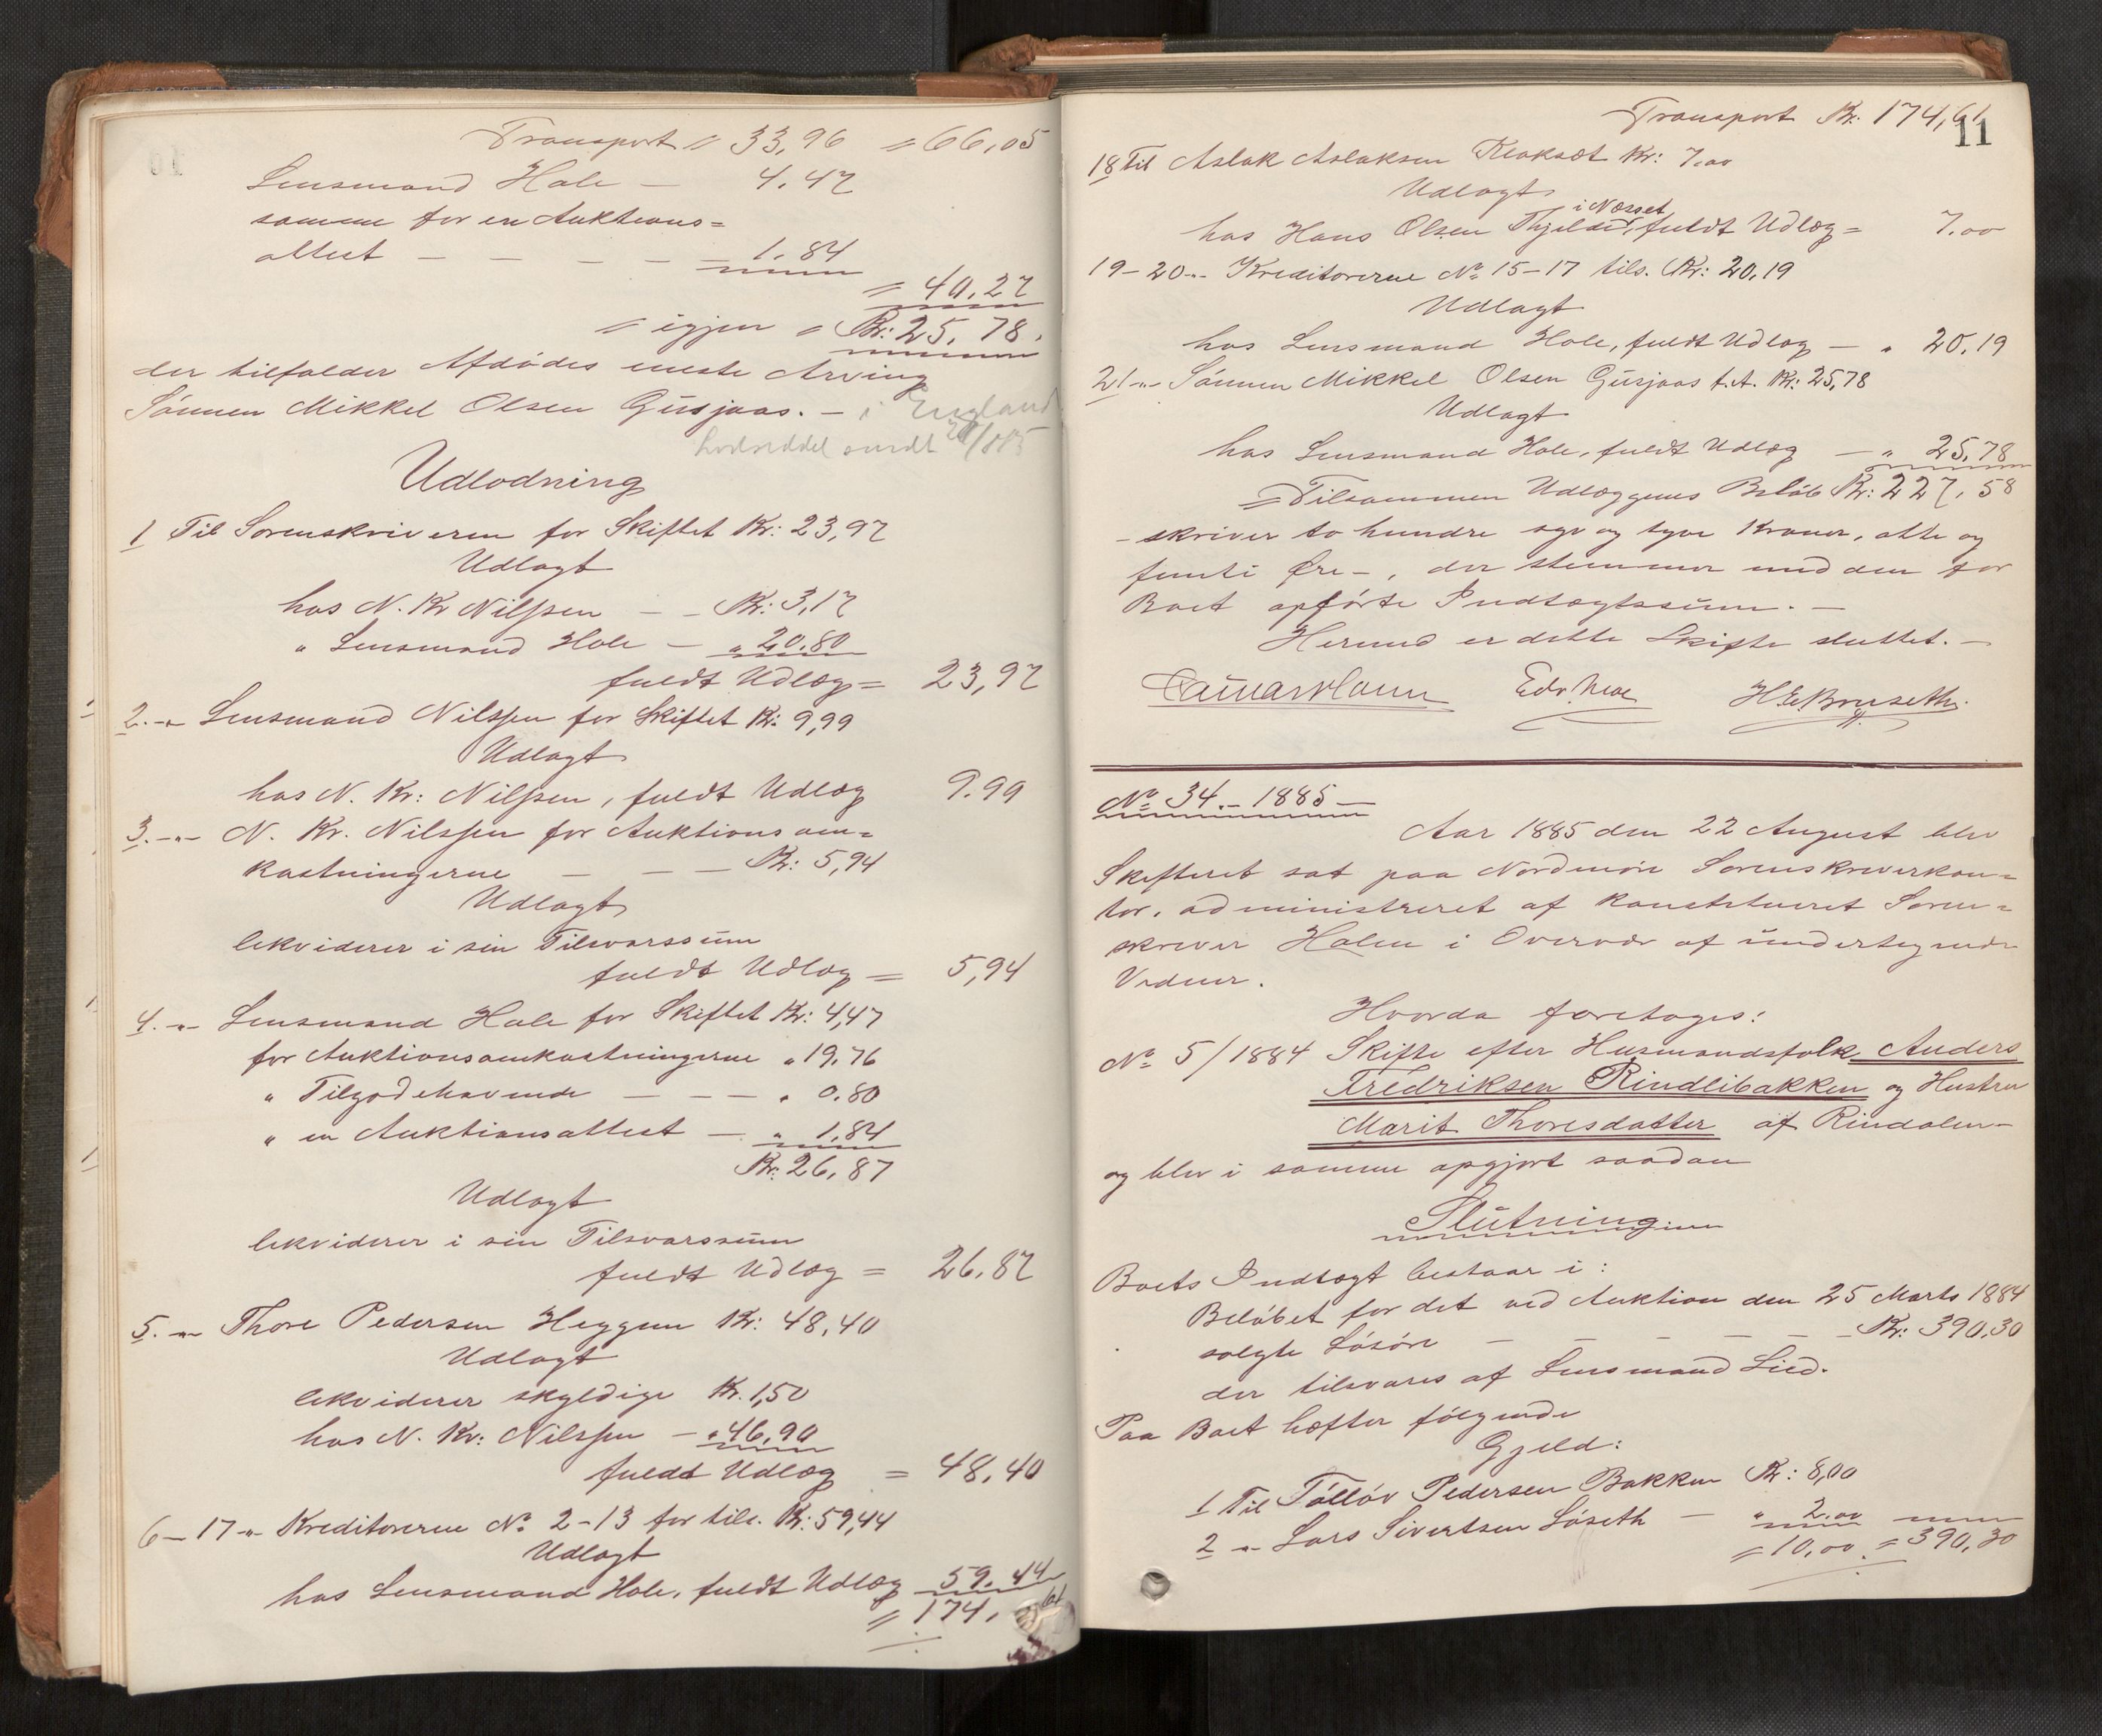 Transport = 33,96 = 66,05
Lensmand Hole — 4.47
samme for en Auktions=
attest — — — — — 1.84
= 40.27
= igjen = Kr: 25,78.
der tilfalder Afdødes eneste Arving
Sønnen Mikkel Olsen Gusjaas. — i England
Udlodning
1 Til Sorenskriveren for Skiftet Kr: 23,97
Udlagt
hos N. Kr Nilssen — — Kr: 3,17
" Lensmand Hole — " 20.80
fuldt Udlæg = 23,97
2. -"- Lensmand Nilssen for Skiftet Kr: 9,99
Udlagt
hos N. Kr: Nilssen, fuldt Udlæg 9.99
3. -"- N. Kr. Nilssen for Auktionsom=
kostningerne — — — Kr: 5,94
Udlagt
likviderer i sin Tilsvarssum
fuldt Udlæg = 5,94
4. -"- Lensmand Hole for Skiftet Kr: 4,47
for Auktionsomkostningerne " 19,76
" Tilgodehavende — — — " 0.80
" en Auktionsattest — " 1,84
Kr: 26,87
Udlagt
likviderer i sin Tilsvarssum
fuldt Udlæg = 26,87
5. -"- Thore Pedersen Heggem Kr: 48,40
Udlagt
likviderer skyldige Kr. 1,50
hos N. Kr: Nilssen — " 46,90
fuldt Udlæg = 48,40
6-17 -"- Kreditorerne No 2-13 for tils. Kr: 59,44
Udlagt
hos Lensmand Hole, fuldt Udlæg 59.44
= 174, 61
Transport Kr: 174,61
11
18 Til Aslak Aslaksen Kloksæt Kr: 7.00
Udlagt
i Nesset
hos Hans Olsen Thjelde, fuldt Udlæg = 7.00
19-20 -"- Kreditorerne No 15-17 tils. Kr: 20,19
Udlagt
hos Lensmand Hole, fuldt Udlæg — " 20,19
21 -"- Sønnen Mikkel Olsen Gusjaas f. A. Kr: 25,78
Udlagt
hos Lensmand Hole, fuldt Udlæg — " 25,78
= Tilsammen Udlæggenes Beløb Kr: 227,58
- skriver to hundre syv og tyve Kroner, otte og
femti Øre —, der stemmer med den for
Boet opførte Indtægtssum. —
Hermed er dette Skifte sluttet. —
Edv. H. E. Bruseth.
No 34. - 1885 —
Aar 1885 den 22 August blev
Skifteret sat paa Nordmøre Sorenskriverkon=
tor, administreret af konstitueret Soren=
skriver Holm i Overvær af undertegnede
Vidner.
Hvorda foretoges:
No 5/1884 Skifte efter Husmandsfolk Anders
Fredriksen Rindlibakken og Hustru
Marit Thoresdatter af Rindalen —
og blev i samme opgjort saadan
Slutning
Boets Indtægt bestaar i:
Beløbet for det ved Auktion den 25 Marts 1884
solgte Løsøre — — — — — Kr: 390,30
der tilsvares af Lensmand Lied.
Paa Boet hæfter følgende
Gjeld:
1 Til Tølløv Pedersen Bakken Kr: 8,00
2 -"- Lars Sivertsen Løseth — " 2.00
= 10,00. = 390,30